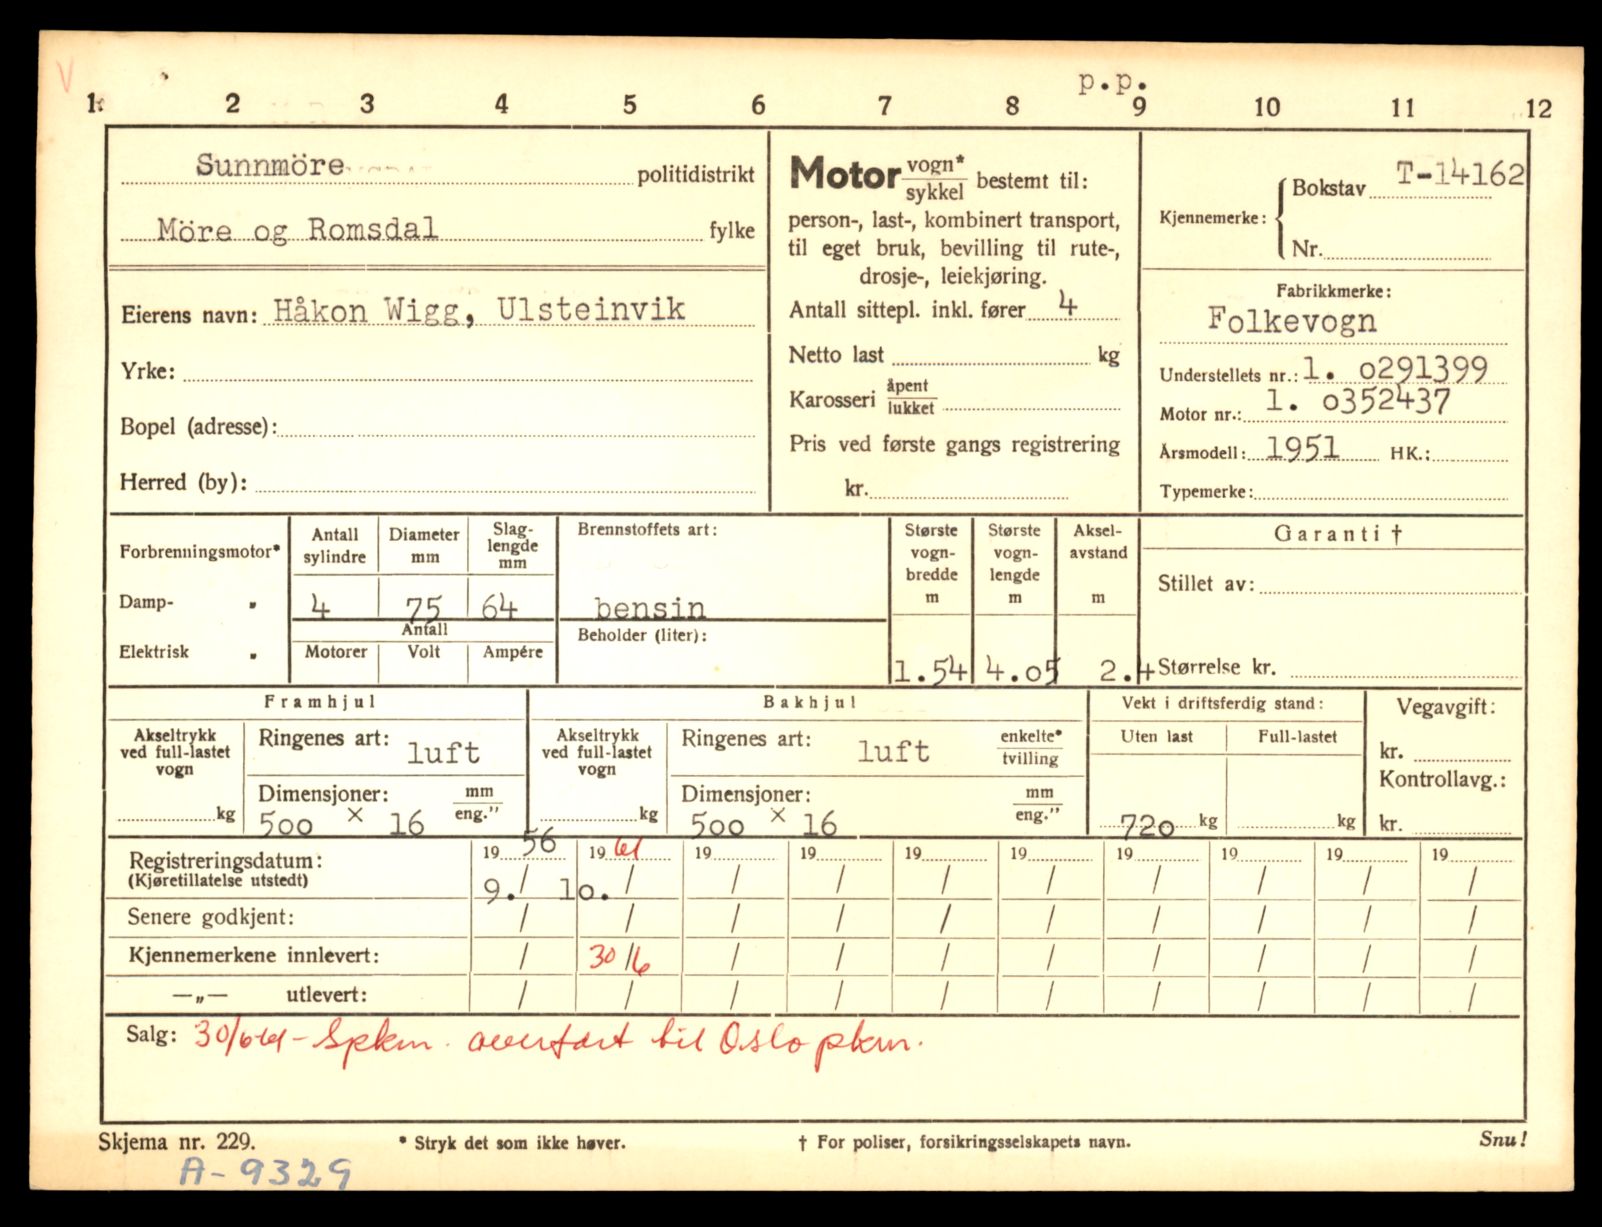 V
p.p.
1 2 3 4 5 6 7 8 9 10 11 12
Sunnmöre politidistrikt
Möre og Romsdal fylke
Eierens navn: Håkon Wigg, Ulsteinvik
Yrke:
Bopel (adresse):
Herred (by):
Motor vogn* / sykkel bestemt til:
person-, last-, kombinert transport,
til eget bruk, bevilling til rute-,
drosje-, leiekjøring.
Antall sittepl. inkl. fører 4
Netto last kg
Karosseri åpent / lukket
Pris ved første gangs registrering
kr.
Kjennemerke: Bokstav T-14162
Nr.
Fabrikkmerke:
Folkevogn
Understellets nr.: 1. o291399
Motor nr.: 1. o352437
Årsmodell: 1951 HK.:
Typemerke:
Forbrenningsmotor*
Damp- „
Elektrisk „
Antall sylindre 4
Diameter mm 75
Slaglengde mm 64
Antall
Motorer Volt Ampére
Brennstoffets art:
bensin
Beholder (liter):
Største vogn-bredde m 1.54
Største vogn-lengde m 4.o5
Aksel-avstand m 2.4
Garanti †
Stillet av:
Størrelse kr.
Framhjul
Akseltrykk ved full-lastet vogn
kg
Ringenes art: luft
Dimensjoner: mm / eng."
5oo × 16
Bakhjul
Akseltrykk ved full-lastet vogn
kg
Ringenes art: luft enkelte* / tvilling
Dimensjoner: mm / eng."
5oo × 16
Vekt i driftsferdig stand:
Uten last Full-lastet
72o kg kg
Vegavgift:
kr.
Kontrollavg.:
kr.
19 56 19 61 19 19 19 19 19 19 19 19
Registreringsdatum:
(Kjøretillatelse utstedt) 9./ 1o. / / / / / / / / /
Senere godkjent: / / / / / / / / / /
Kjennemerkene innlevert: / 30/6 / / / / / / / /
—„— utlevert: / / / / / / / / / /
Salg: 30/6-61 - Spkm. overført til Oslo pkm.
Skjema nr. 229. * Stryk det som ikke høver. † For poliser, forsikringsselskapets navn. Snu!
A-9329